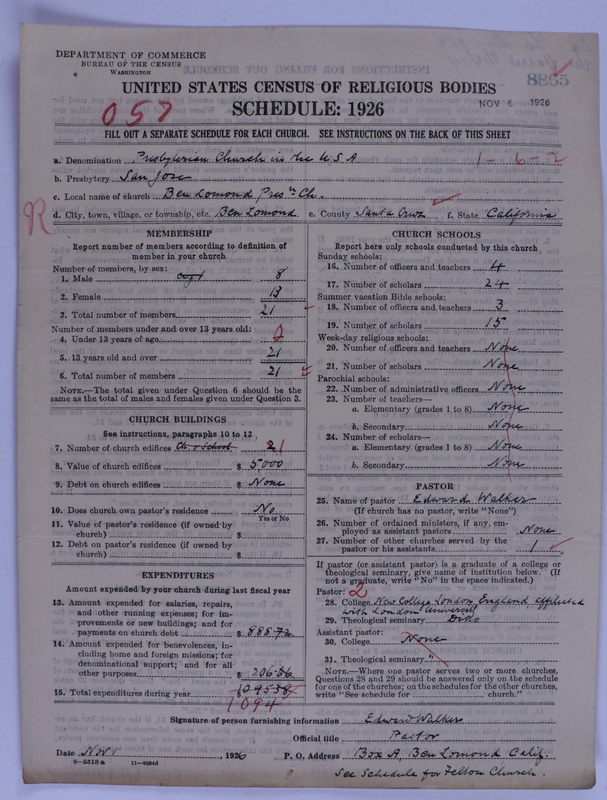 DEPARTMENT OF COMMERCE
BUREAU OF THE CENSUS
WASHINGTON
8865
UNITED STATES CENSUS OF RELIGIOUS BODIES
SCHEDULE: 1926
NOV 6 1926
057
FILL OUT A SEPARATE SCHEDULE FOR EACH CHURCH. SEE INSTRUCTIONS ON THE BACK OF THIS SHEET
a. Denomination Presbyterian Church in the U.S.A 1-6-2
b. Presbytery San Jose
c. Local name of church Ben Lomond Pres'n Ch.
d. City, town, village, or township, etc. Ben Lomond e. County Santa Cruz f. State California
R
MEMBERSHIP
Report number of members according to definition of member in your church.
Number of members, by sex:
1. Male 8
2. Female 13
3. Total number of members 21
Number of members under and over 13 years old:
4. Under 13 years of age
5. 13 years old and over 21
6. Total number of members 21
NOTE.—The total given under Question 6 should be the
same as the total of males and females given under Question 3.
CHURCH BUILDINGS
See instructions, paragraphs 10 to 12
7. Number of church edifices Ch. & School 2 1
8. Value of church edifices $ 5000
9. Debt on church edifices $ None
10. Does church own pastor's residence No
Yes or No
11. Value of pastor's residence (if owned by
church) $
12. Debt on pastor's residence (if owned by
church) $
EXPENDITURES
Amount expended by your church during last fiscal year
13. Amount expended for salaries, repairs,
and other running expenses; for im-
provements or new buildings; and for
payments on church debt $ 888.72
14. Amount expended for benevolences, in-
cluding home and foreign missions; for
denominational support; and for all
other purposes $ 206.56
15. Total expenditures during year
1094
CHURCH SCHOOLS
Report here only schools conducted by this church
Sunday schools:
16. Number of officers and teachers 4
17. Number of scholars 24
Summer vacation Bible schools:
18. Number of officers and teachers 3
19. Number of scholars 15
Week-day religious schools:
20. Number of officers and teachers None
21. Number of scholars None
Parochial schools:
22. Number of administrative officers None
23. Number of teachers—
a. Elementary (grades 1 to 8) None
b. Secondary None
24. Number of scholars—
a. Elementary (grades 1 to 8) None
b. Secondary None
PASTOR
25. Name of pastor Edward Walker
(If church has no pastor, write "None")
26. Number of ordained ministers, if any, em-
ployed as assistant pastors None
27. Number of other churches served by the
pastor or his assistants 1
If pastor (or assistant pastor) is a graduate of a college or
theological seminary, give name of institution below. (If
not a graduate, write "No" in the space indicated.)
Pastor: 2
28. College New College London England affiliated
with London University
29. Theological seminary Ditto
Assistant pastor:
30. College None
31. Theological seminary "
NOTE.—Where one pastor serves two or more churches,
Questions 28 and 29 should be answered only on the schedule
for one of the churches; on the schedules for the other churches,
write "See schedule for church."
Signature of person furnishing information Edward Walker
Official title Pastor
Date Nov 1, 1926 P. O. Address Box A, Ben Lomond Calif.
8-5518 a
See Schedule for Felton Church.